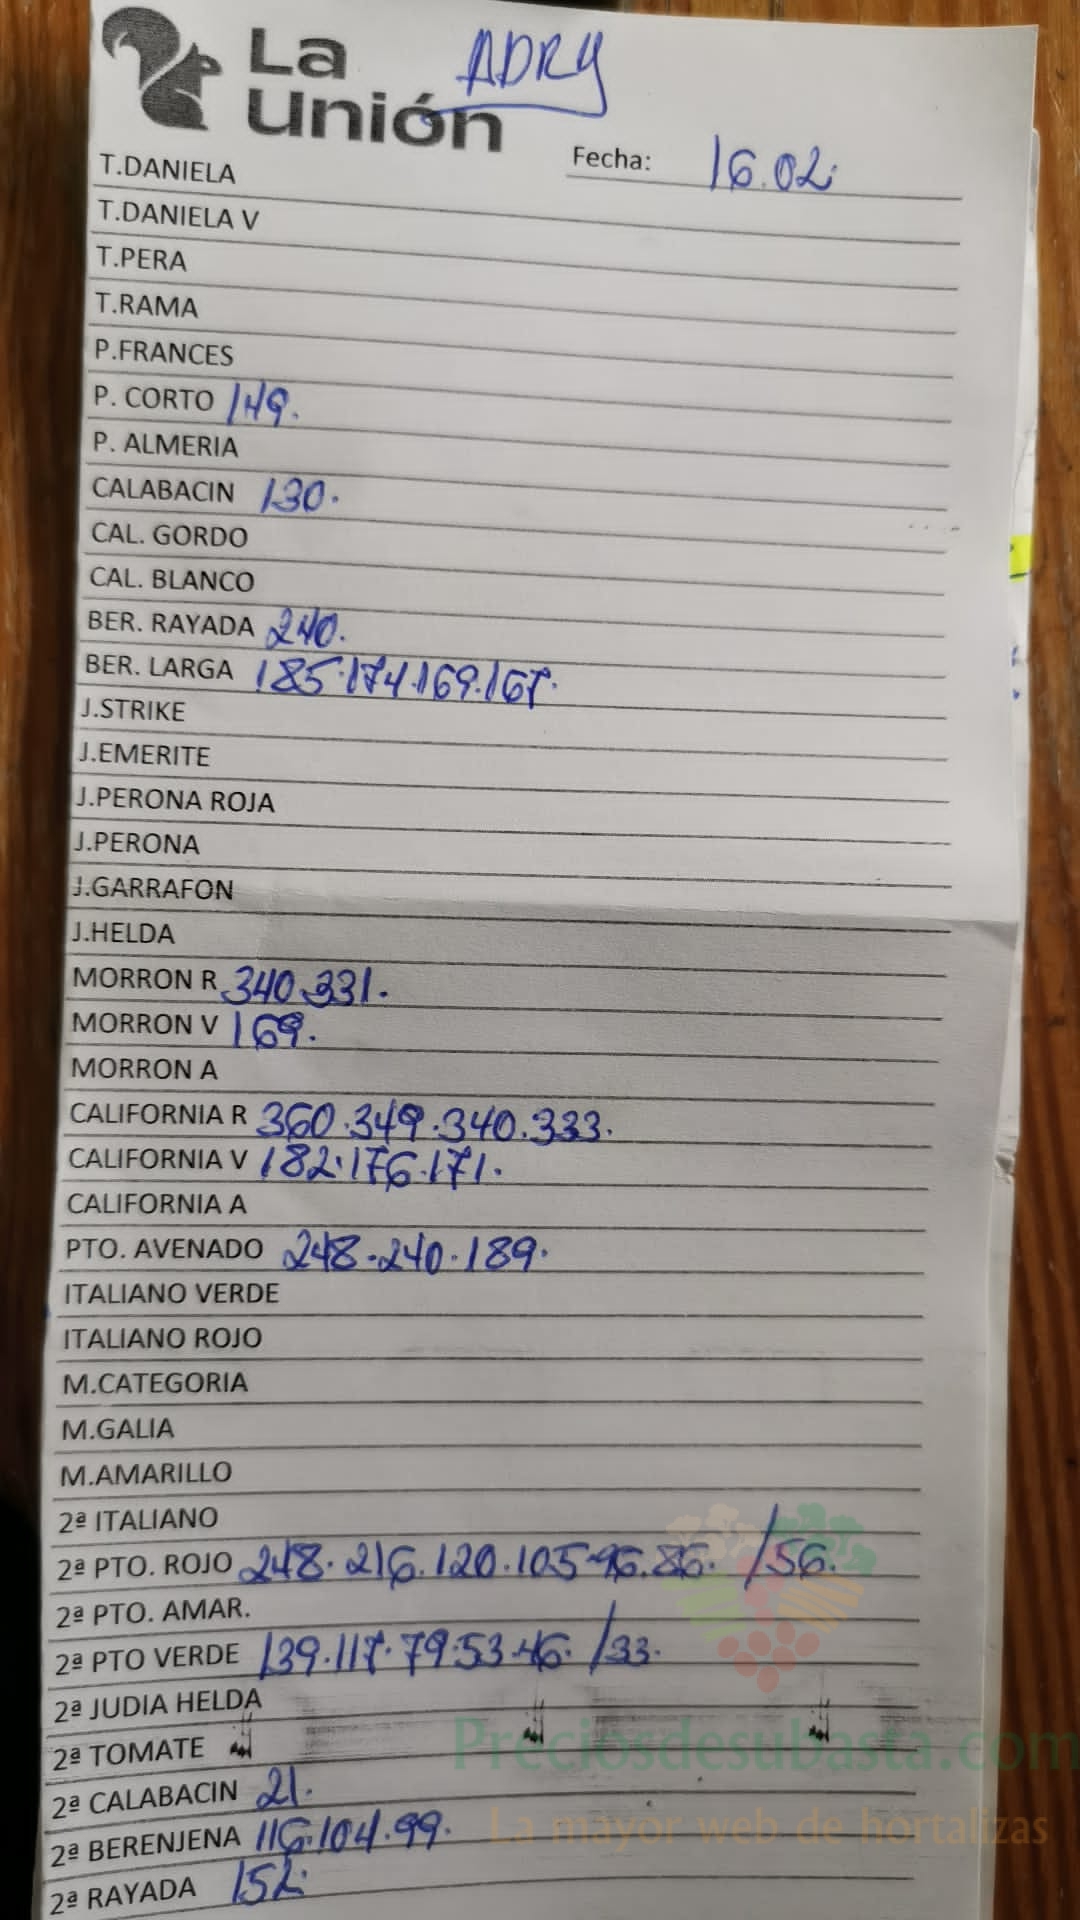 La
Unión
ADRY
Fecha: 16.02.
T.DANIELA
T.DANIELA V
T.PERA
T.RAMA
P.FRANCES
P. CORTO 149.
P. ALMERIA
CALABACIN 130.
CAL. GORDO
CAL. BLANCO
BER. RAYADA 240.
BER. LARGA 185.174.169.167.
J.STRIKE
J.EMERITE
J.PERONA ROJA
J.PERONA
J.GARRAFON
J.HELDA
MORRON R 340.331.
MORRON V 169.
MORRON A
CALIFORNIA R 360.349.340.333.
CALIFORNIA V 182.176.171.
CALIFORNIA A
PTO. AVENADO 248.240.189.
ITALIANO VERDE
ITALIANO ROJO
M.CATEGORIA
M.GALIA
M.AMARILLO
2ª ITALIANO
2ª PTO. ROJO 248.216.120.105.96.86. /56.
2ª PTO. AMAR.
2ª PTO VERDE 139.117.79.53.46. /33.
2ª JUDIA HELDA
2ª TOMATE
2ª CALABACIN 21.
2ª BERENJENA 116.104.99.
2ª RAYADA 152.
Preciosdesubasta.com
La mayor web de hortalizas